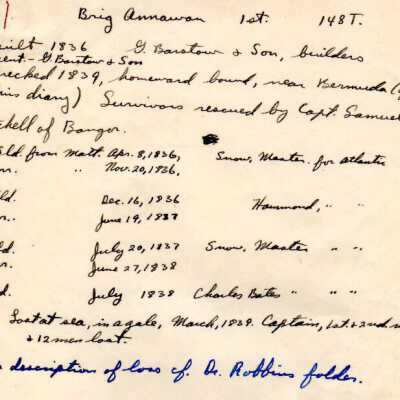 Brig Annawan 1st. 148T.
uilt 1836 G. Barstow & Son, builders
ent.- G. Barstow & Son
recked 1839, homeward bound, near Bermuda
his diary) Survivors rescued by Capt. Samuel
chell of Bangor.
ld. from Matt. Apr. 8, 1836, Snow, Master. for Atlantic
r.. " " Nov. 20, 1836,
ld. Dec. 16, 1836 Hammond, " "
r.. June 19, 1837
d. July 20, 1837 Snow, Master " "
r.. June 27, 1838
d. July 1838 Charles Bates " " "
Lost at sea, in a gale, March, 1839. Captain, 1st. & 2nd m
& 12 men lost.
description of loss cf. Dr. Robbins folder.